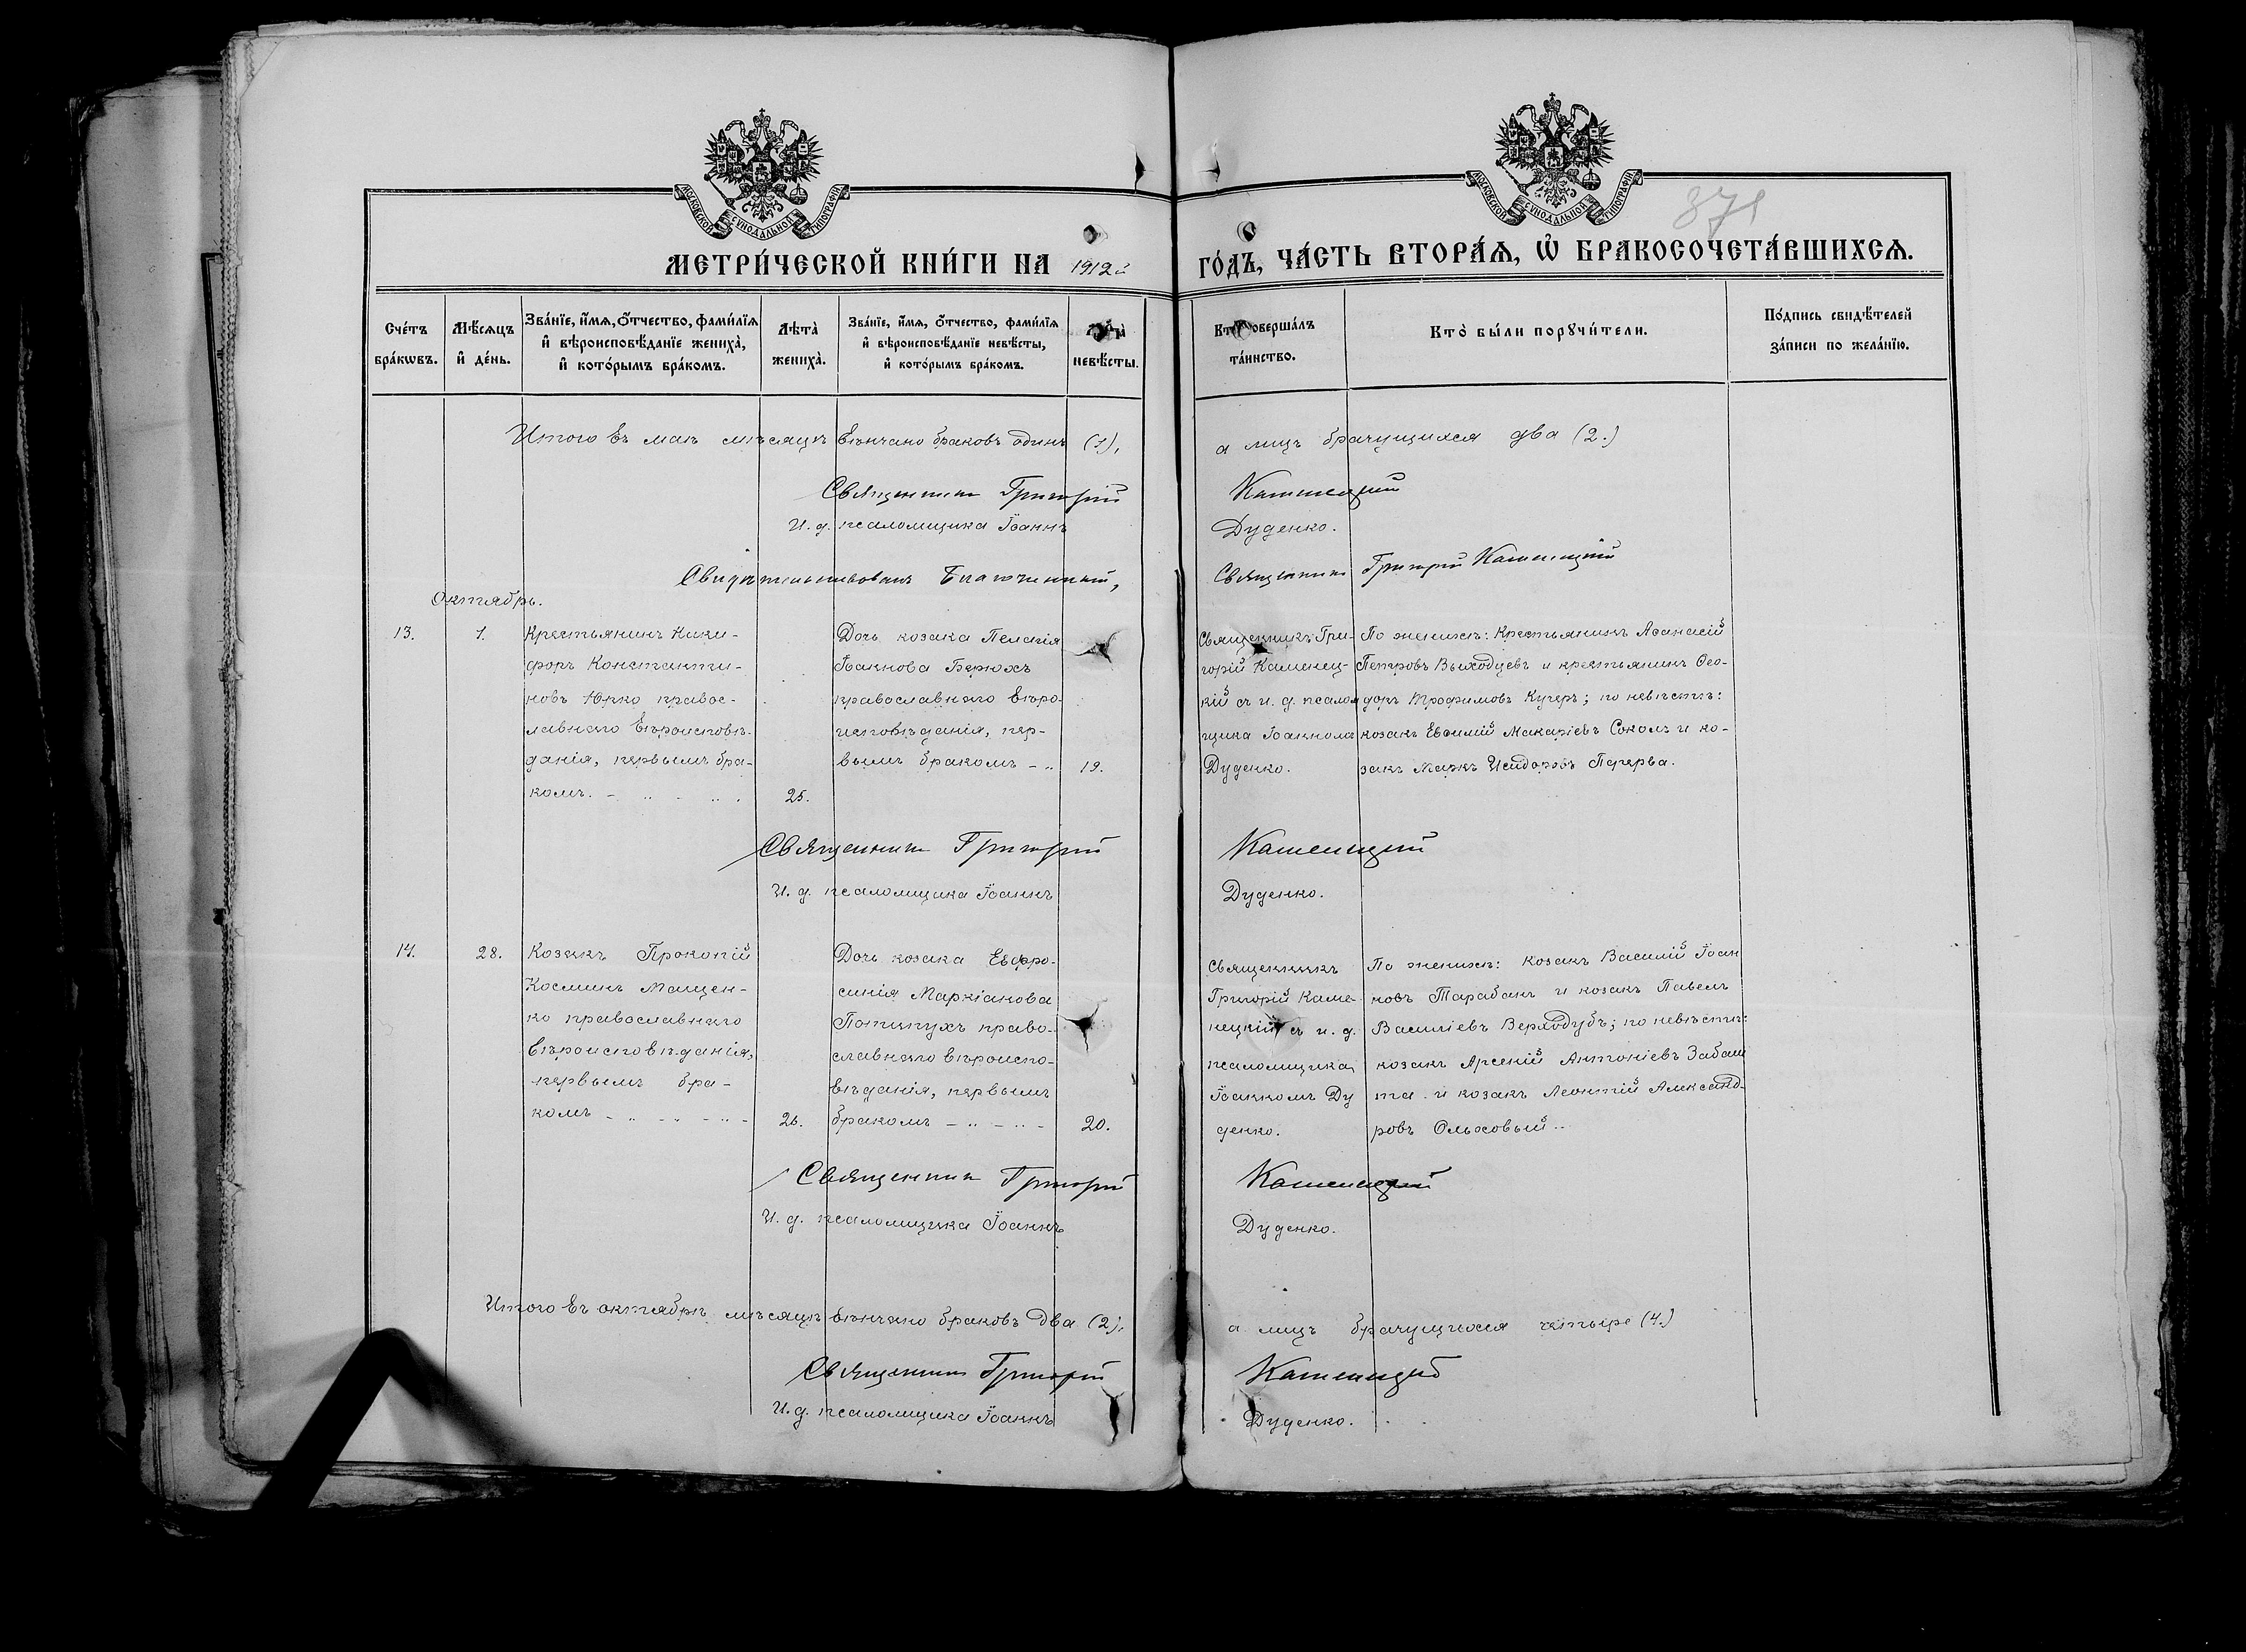 МОСКОВСКОЙ СѴНОДАЛЬНОЙ ТИПОГРАФІИ
МОСКОВСКОЙ СѴНОДАЛЬНОЙ ТИПОГРАФІИ
371
МЕТРИ́ЧЕСКОЙ КНИ́ГИ НА 1912
ГО́ДЪ, ЧА́СТЬ ВТОРА́Ѧ, Ѽ БРАКОСОЧЕТА́ВШИХСѦ.
Сче́тъ бра́кωвъ.
Мѣ́сѧцъ и҆ де́нь.
Зва́нїе, и҆́мѧ, ѻ҆́тчество, фами́лїѧ и҆ вѣроисповѣ́данїе жениха̀, и҆ кото́рымъ бра́комъ.
Лѣта̀ жениха̀.
Зва́нїе, и҆́мѧ, ѻ҆́тчество, фами́лїѧ и҆ вѣроисповѣ́данїе невѣ́сты, и҆ кото́рымъ бра́комъ.
Лѣта̀ невѣ́сты.
Кто̀ соверша́лъ та́инство.
Кто̀ бы́ли порꙋчи́тели.
По́дпись свидѣ́телей за́писи по жела́нїю.
Итого въ маѣ мѣсяцѣ вѣнчано браковъ одинъ (1), а лицъ брачущихся два (2.)
Священникъ Григорій Каменецкій
И. д. псаломщика Іоаннъ Дуденко.
Свидѣтельствовалъ Благочинный, Священникъ Григорій Каменецкій
Октябрь.
13.
1.
Крестьянинъ Ники-
форъ Константи-
новъ Юрко правос-
лавнаго вѣроисповѣ-
данія, первымъ бра-
комъ.
25.
Дочь козака Пелагія
Іоаннова Берюхъ
православнаго вѣро-
исповѣданія, пер-
вымъ бракомъ
19.
Священникъ Гри-
горій Каменец-
кій съ и. д. псалом
щика Іоанномъ
Дуденко.
По женихѣ: Крестьянинъ Аѳанасій
Петровъ Выходцевъ и крестьянинъ Ѳео-
доръ Трофимовъ Кучеръ; по невѣстѣ:
козакъ Евѳимій Макаріевъ Соколъ и ко-
закъ Маркъ Исидоровъ Пčерва.
Священникъ Григорій Каменецкій
И. д. псаломщика Іоаннъ Дуденко.
14.
28.
Козакъ Прокопій
Косминъ Мащен-
ко православнаго
вѣроисповѣданія,
первымъ бра-
комъ
26.
Дочь козака Евфро-
синія Маркіанова
Потипухъ право-
славнаго вѣроиспо-
вѣданія, первымъ
бракомъ
20.
Священникъ
Григорій Каме-
нецкій съ и. д.
псаломщика
Іоанномъ Ду
денко.
По женихѣ: козакъ Василій Іоан
новъ Тарабанъ и козакъ Павелъ
Василіевъ Верходубъ; по невѣстѣ:
козакъ Арсеній Антоніевъ Забаш
та и козакъ Леонтій Александ-
ровъ Ольховый
Священникъ Григорій Каменецкій
И. д. псаломщика Іоаннъ Дуденко.
Итого въ октябрѣ мѣсяцѣ вѣнчано браковъ два (2), а лицъ брачущихся четыре (4.)
Священникъ Григорій Каменецкій
И. д. псаломщика Іоаннъ Дуденко.